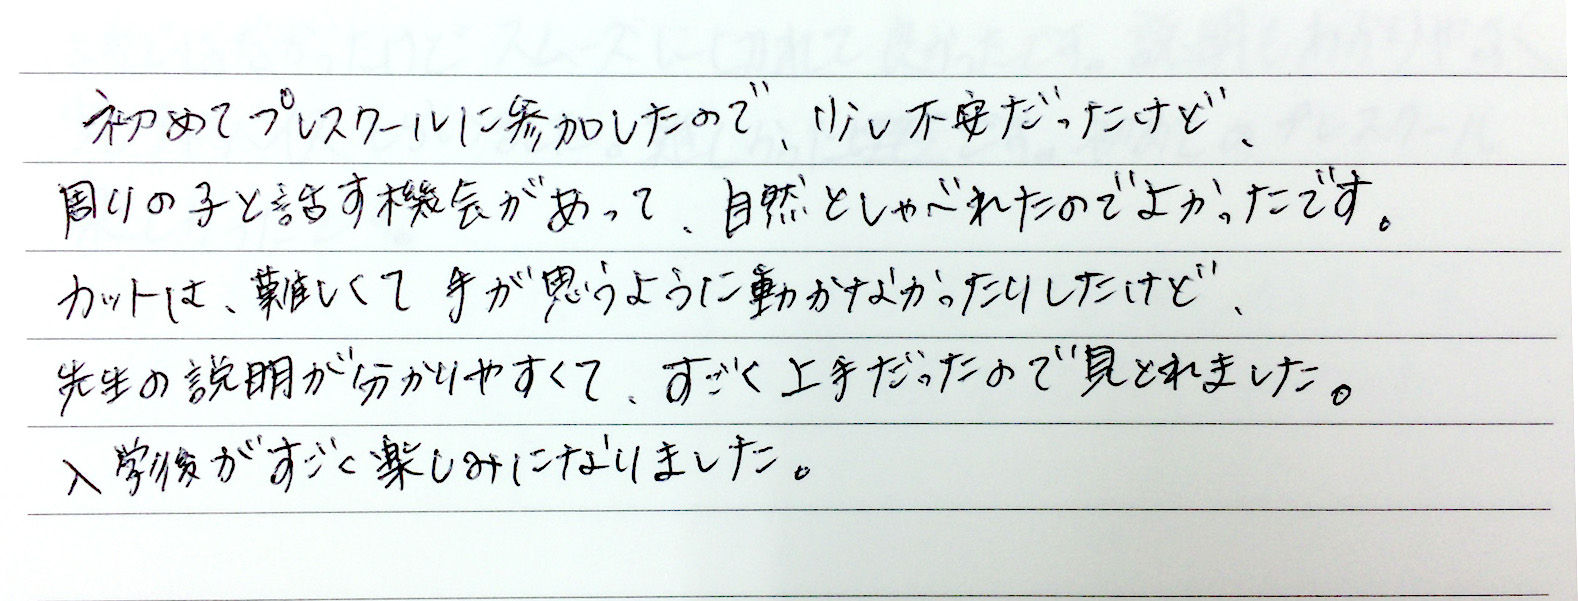 初めてプレスクールに参加したので、少し不安だったけど、
周りの子と話す機会があって、自然としゃべれたのでよかったです。
カットは、難しくて手が思うように動かなかったりしたけど、
先生の説明が分かりやすくて、すごく上手だったので見とれました。
入学後がすごく楽しみになりました。